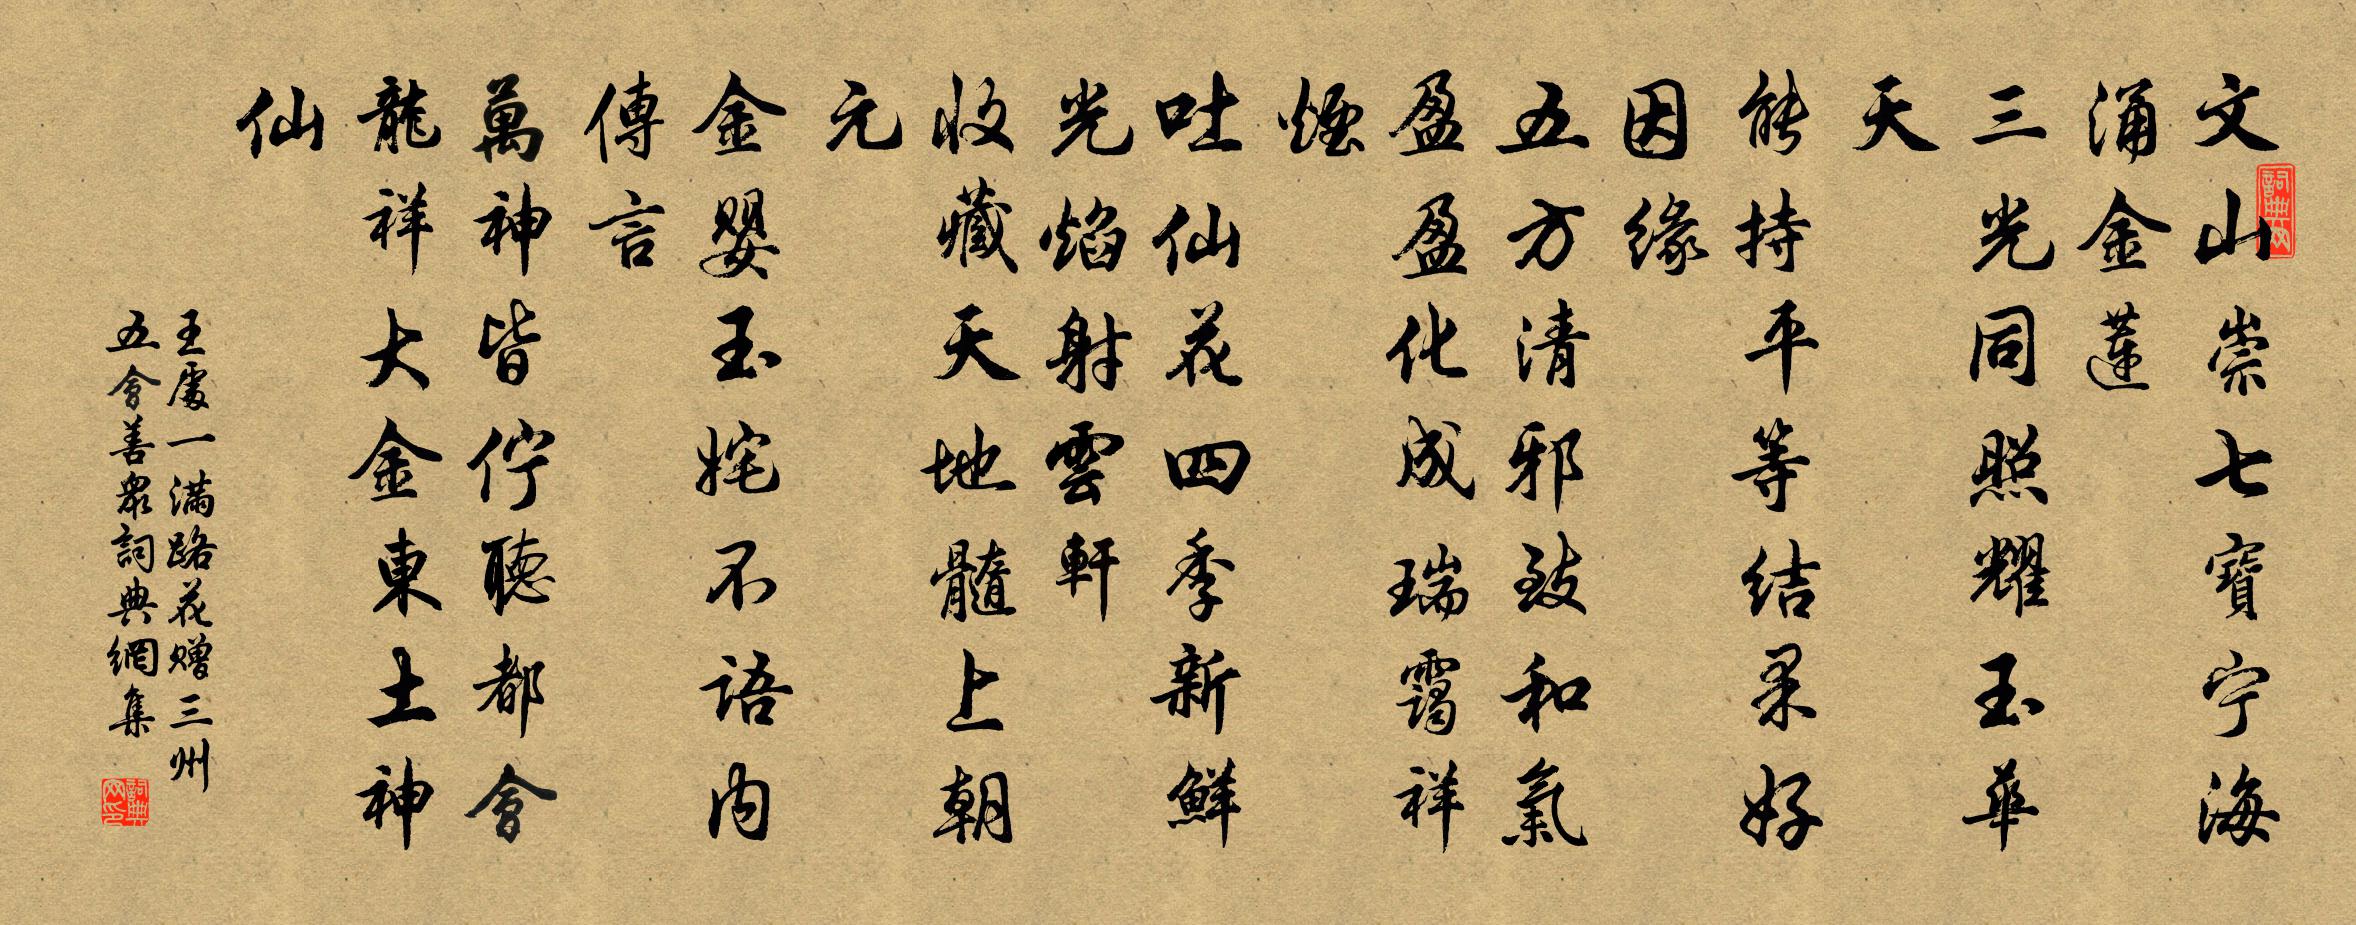 文山崇七寶宁海
涌金蓮
三光同照耀玉華
天
能持平等结果好
因缘
五方清邪致和氣
盈盈化成瑞靄祥
煙
吐仙花四季新鮮
光焰射雲軒
收藏天地髓上朝
元
金嬰玉姹不语内
傳言
萬神皆佇聽都會
龍祥大金東土神
仙
王處一滿路花赠三州
五會善衆詞典網集
詞典网
詞典网印